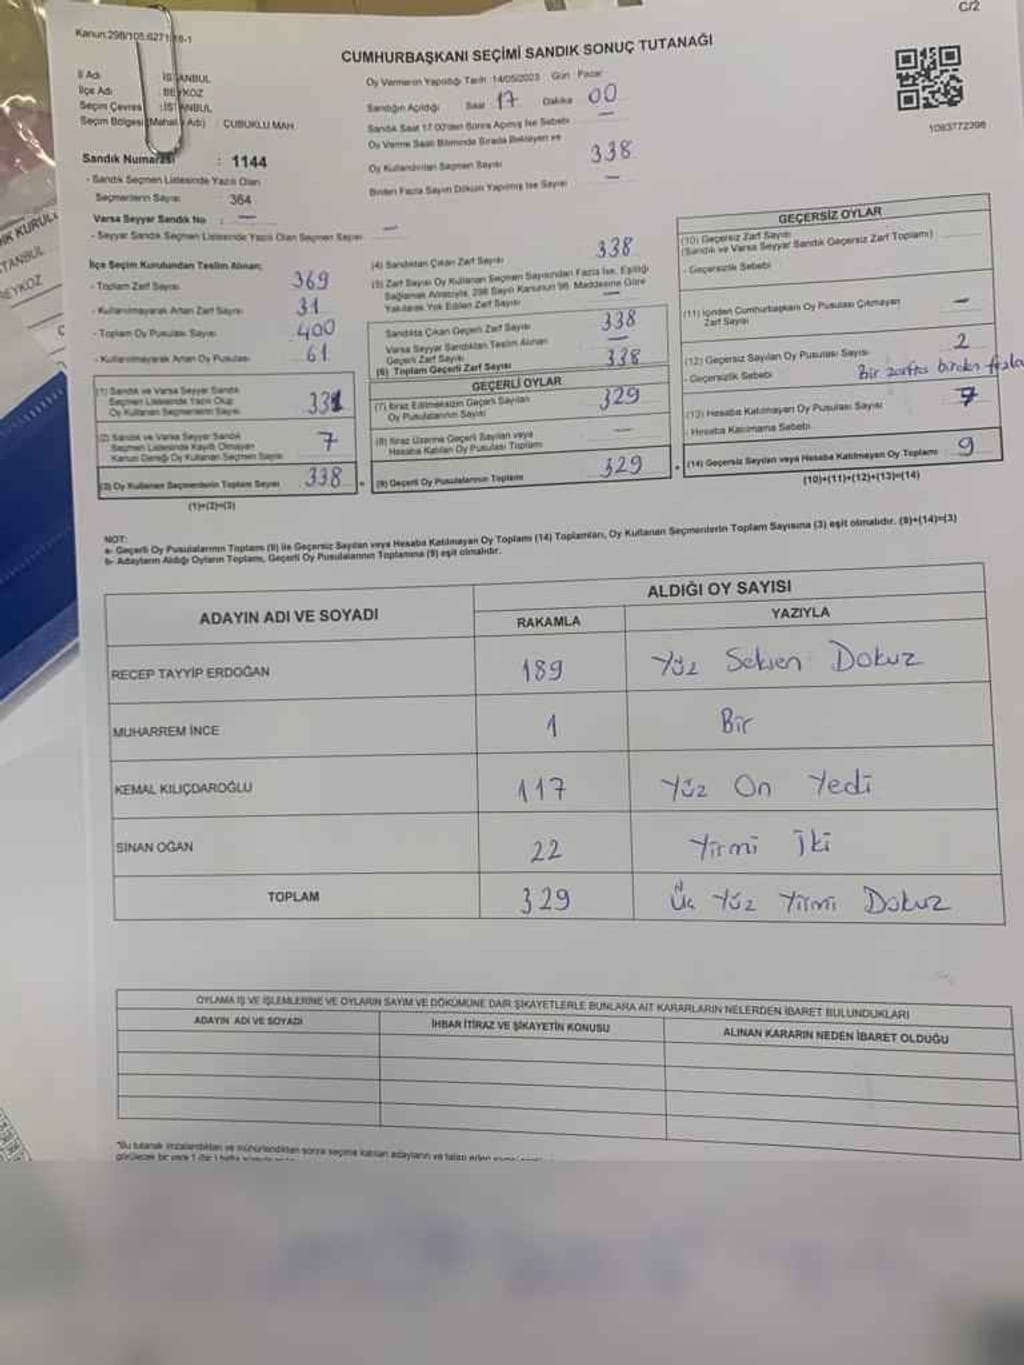 C/2
Kanun:298/105:6271/18-1
CUMHURBAŞKANI SEÇİMİ SANDIK SONUÇ TUTANAĞI
İl Adı : İSTANBUL
İlçe Adı : BEYKOZ
Seçim Çevresi : İSTANBUL
Seçim Bölgesi (Mahalle Adı) : ÇUBUKLU MAH.
Sandık Numarası : 1144
- Sandık Seçmen Listesinde Yazılı Olan
Seçmenlerin Sayısı 364
Varsa Seyyar Sandık No : —
- Seyyar Sandık Seçmen Listesinde Yazılı Olan Seçmen Sayısı —
Oy Vermenin Yapıldığı Tarih :14/05/2023 Gün : Pazar
Sandığın Açıldığı Saat 17 Dakika 00
Sandık Saat 17.00'den Sonra Açılmış İse Sebebi —
Oy Verme Saati Bitiminde Sırada Bekleyen ve
Oy Kullandırılan Seçmen Sayısı 338
Birden Fazla Sayım Döküm Yapılmış İse Sayısı —
1093772398
İlçe Seçim Kurulundan Teslim Alınan;
- Toplam Zarf Sayısı 369
- Kullanılmayarak Artan Zarf Sayısı 31
- Toplam Oy Pusulası Sayısı 400
- Kullanılmayarak Artan Oy Pusulası 61
(1) Sandık ve Varsa Seyyar Sandık
Seçmen Listesinde Yazılı Olup
Oy Kullanan Seçmenlerin Sayısı 331
(2) Sandık ve Varsa Seyyar Sandık
Seçmen Listesinde Kayıtlı Olmayan
Kanun Gereği Oy Kullanan Seçmen Sayısı 7
(3) Oy Kullanan Seçmenlerin Toplam Sayısı 338
(1)+(2)=(3)
(4) Sandıktan Çıkan Zarf Sayısı 338
(5) Zarf Sayısı Oy Kullanan Seçmen Sayısından Fazla İse, Eşitliği
Sağlamak Amacıyla, 298 Sayılı Kanunun 98. Maddesine Göre
Yakılarak Yok Edilen Zarf Sayısı —
Sandıkta Çıkan Geçerli Zarf Sayısı 338
Varsa Seyyar Sandıktan Teslim Alınan
Geçerli Zarf Sayısı —
(6) Toplam Geçerli Zarf Sayısı 338
GEÇERLİ OYLAR
(7) İtiraz Edilmeksizin Geçerli Sayılan
Oy Pusulalarının Sayısı 329
(8) İtiraz Üzerine Geçerli Sayılan veya
Hesaba Katılan Oy Pusulası Toplamı —
(9) Geçerli Oy Pusulalarının Toplamı 329
GEÇERSİZ OYLAR
(10) Geçersiz Zarf Sayısı
(Sandık ve Varsa Seyyar Sandık Geçersiz Zarf Toplamı)
- Geçersizlik Sebebi
(11) İçinden Cumhurbaşkanı Oy Pusulası Çıkmayan
Zarf Sayısı —
(12) Geçersiz Sayılan Oy Pusulası Sayısı 2
- Geçersizlik Sebebi Bir zarftan birden fazla
(13) Hesaba Katılmayan Oy Pusulası Sayısı 7
- Hesaba Katılmama Sebebi
(14) Geçersiz Sayılan veya Hesaba Katılmayan Oy Toplamı 9
(10)+(11)+(12)+(13)=(14)
NOT:
a- Geçerli Oy Pusulalarının Toplamı (9) ile Geçersiz Sayılan veya Hesaba Katılmayan Oy Toplamı (14) Toplamları, Oy Kullanan Seçmenlerin Toplam Sayısına (3) eşit olmalıdır. (9)+(14)=(3)
b- Adayların Aldığı Oyların Toplamı, Geçerli Oy Pusulalarının Toplamına (9) eşit olmalıdır.
ADAYIN ADI VE SOYADI ALDIĞI OY SAYISI
RAKAMLA YAZIYLA
RECEP TAYYİP ERDOĞAN 189 Yüz Seksen Dokuz
MUHARREM İNCE 1 Bir
KEMAL KILIÇDAROĞLU 117 Yüz On Yedi
SİNAN OĞAN 22 Yirmi İki
TOPLAM 329 Üç Yüz Yirmi Dokuz
OYLAMA İŞ VE İŞLEMLERİNE VE OYLARIN SAYIM VE DÖKÜMÜNE DAİR ŞİKAYETLERLE BUNLARA AİT KARARLARIN NELERDEN İBARET BULUNDUKLARI
ADAYIN ADI VE SOYADI İHBAR İTİRAZ VE ŞİKAYETİN KONUSU ALINAN KARARIN NEDEN İBARET OLDUĞU
*Bu tutanak imzalandıktan ve mühürlendikten sonra seçime katılan adayların ve talep eden
IK KURUL
TANBUL
BEYKOZ